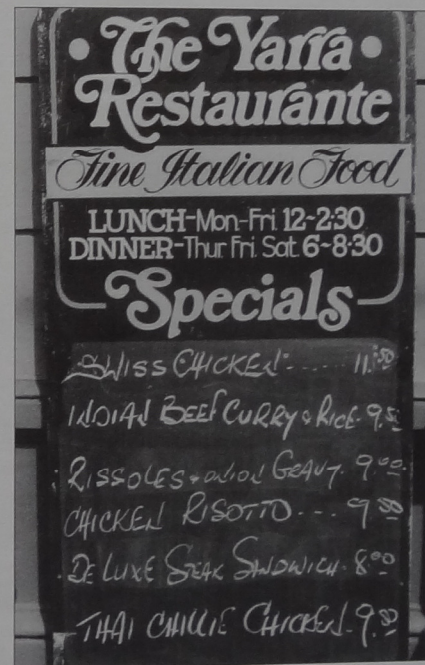 The Yarra
Restaurante
Fine Italian Food
LUNCH-Mon-Fri 12-2:30
DINNER-Thur Fri Sat 6-8:30
Specials
SWISS CHICKEN ..... 11.50
INDIAN BEEF CURRY & RICE 9.50
RISSOLES & ONION GRAVY. 9.00
CHICKEN RISOTTO --- 9.50
DE LUXE STEAK SANDWICH. 8.00
THAI CHILLIE CHICKEN. 9.50